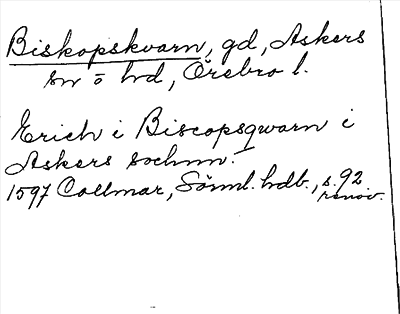 Biskopskvarn, gd, Askers
sn o hd, Örebro l.
Erich i Biscopsqwarn i
Askers sochnn.
1597 Collmar, Sörml. hdb., s. 92
renov.